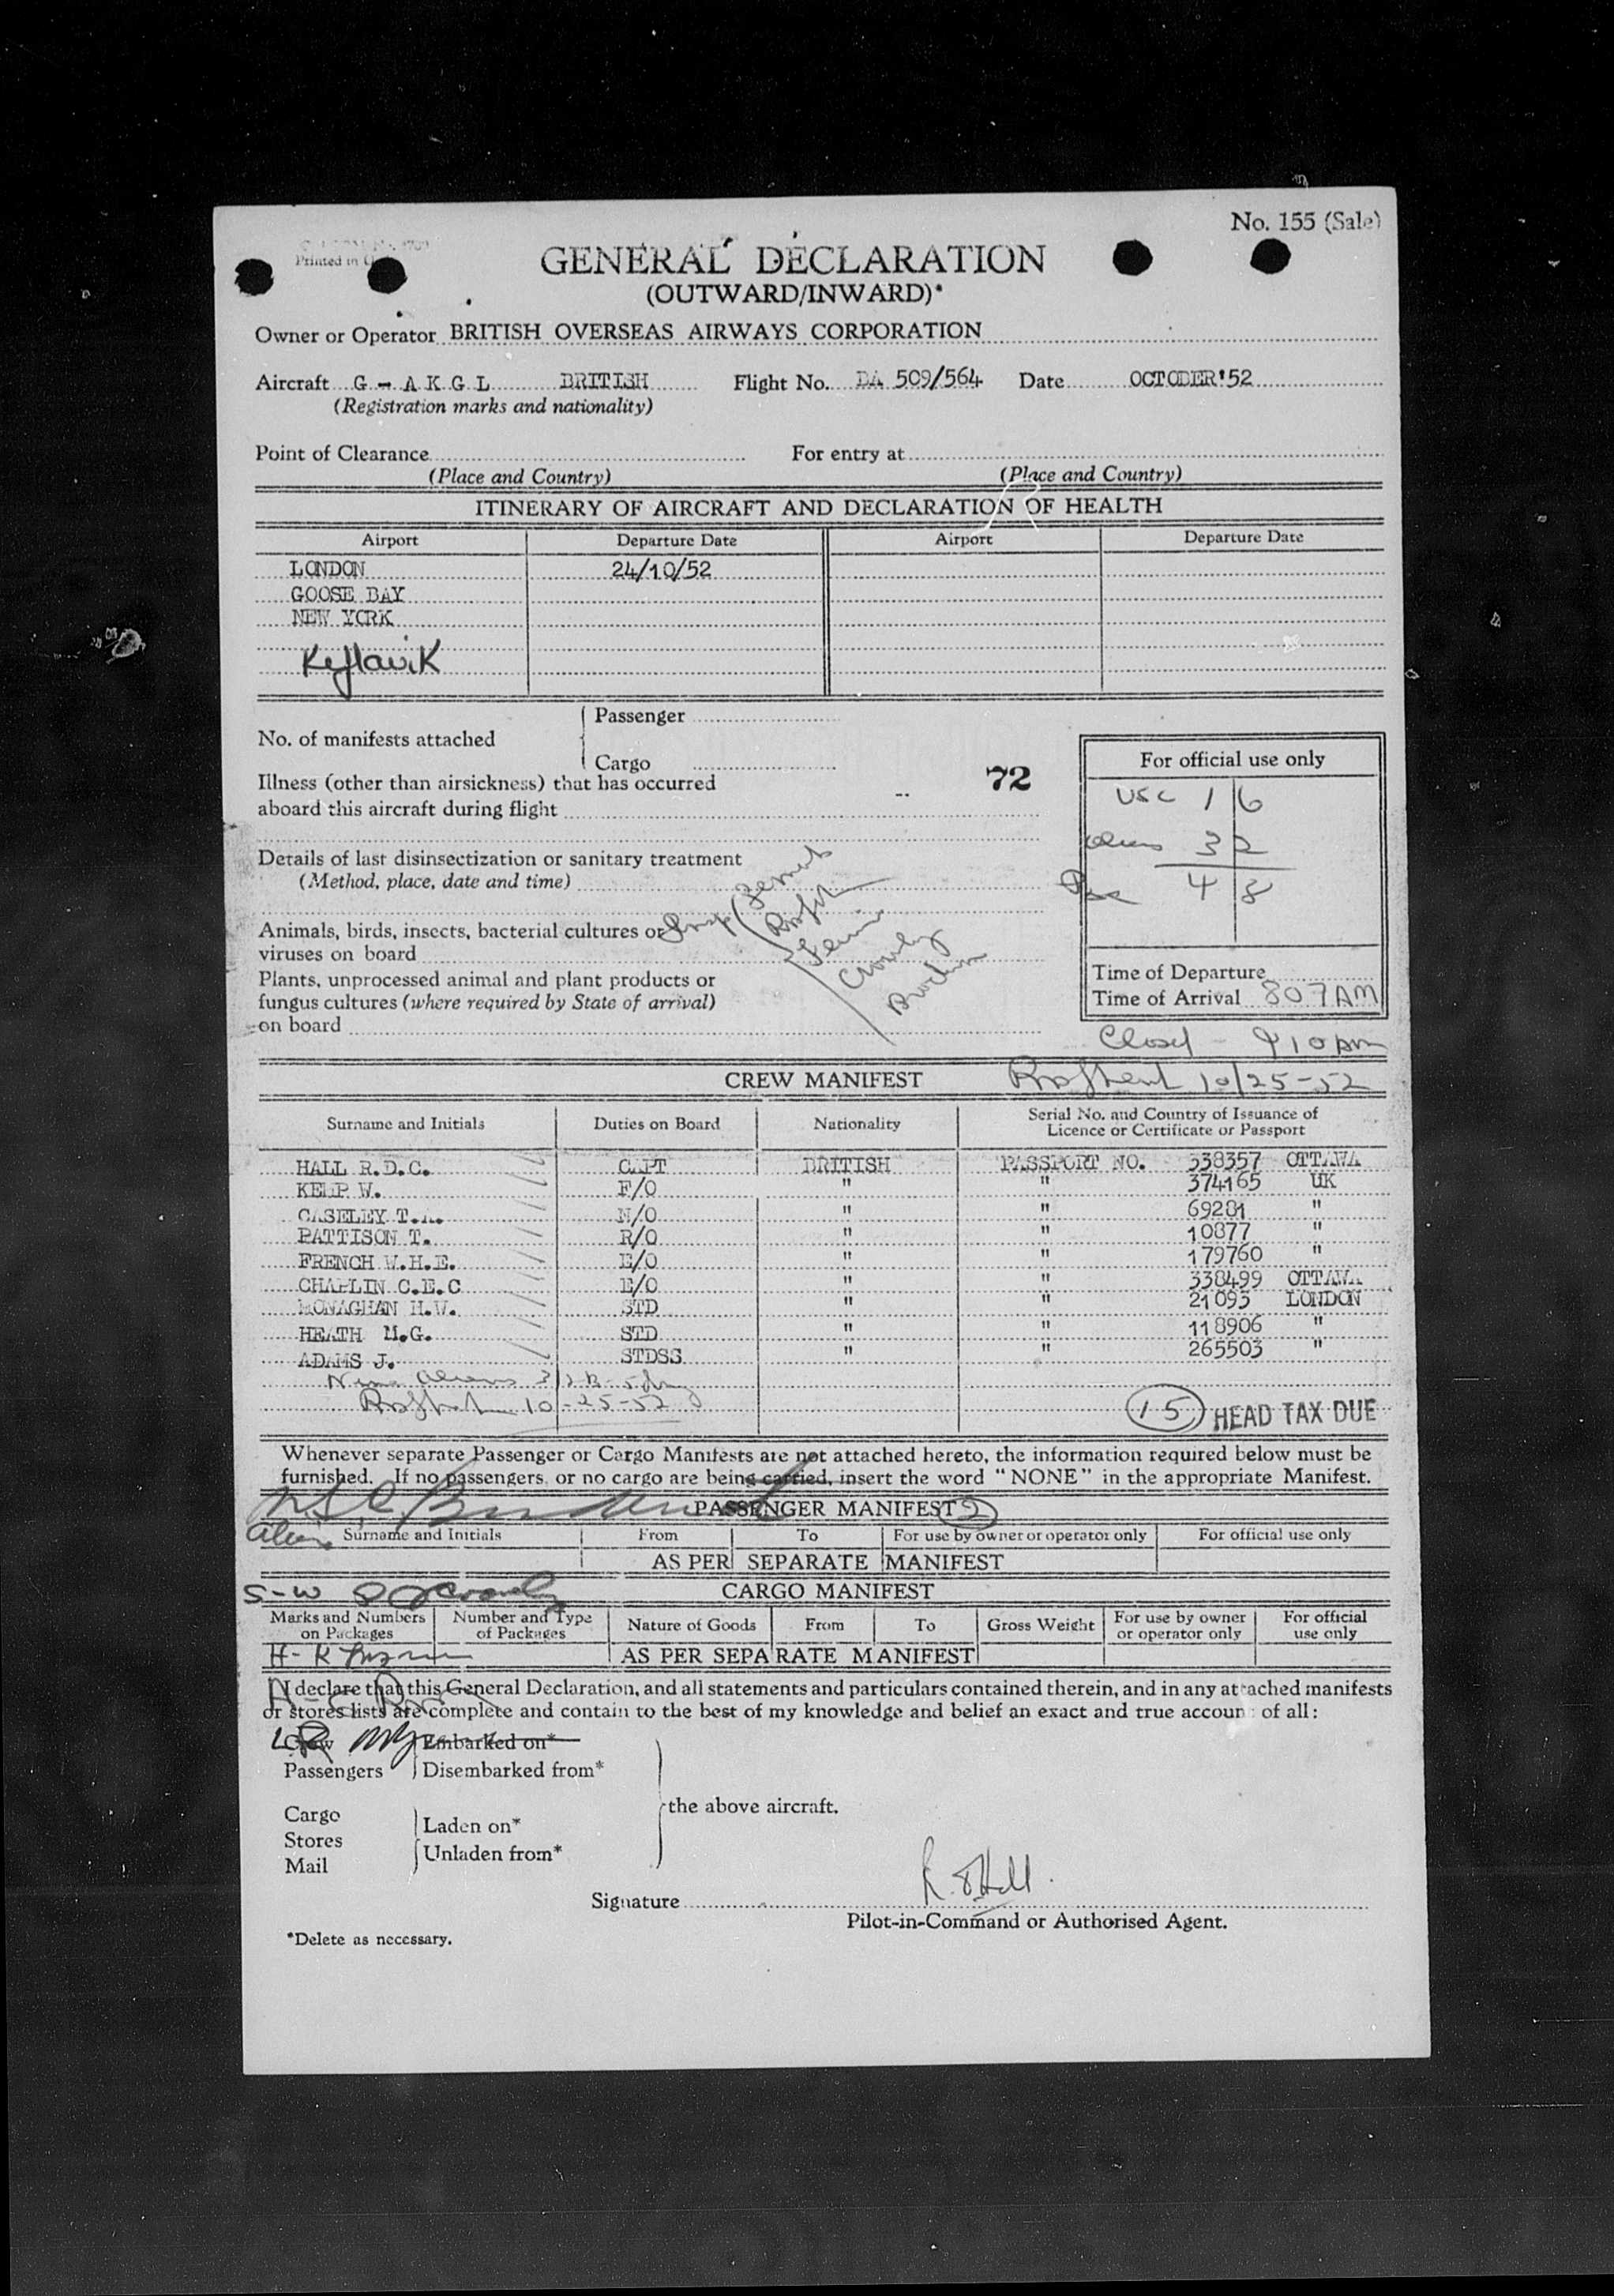 No. 155 (Sale)
Printed in
GENERAL DECLARATION
(OUTWARD/INWARD)*
Owner or Operator BRITISH OVERSEAS AIRWAYS CORPORATION
Aircraft G - A K G L BRITISH Flight No. BA 509/564 Date OCTOBER'52
(Registration marks and nationality)
Point of Clearance For entry at
(Place and Country) (Place and Country)
ITINERARY OF AIRCRAFT AND DECLARATION OF HEALTH
Airport Departure Date Airport Departure Date
LONDON 24/10/52
GOOSE BAY
NEW YORK
Keflavik
Passenger
No. of manifests attached
Cargo
For official use only
Illness (other than airsickness) that has occurred 72
aboard this aircraft during flight
USC 1 6
Aliens 3 2
4 8
Details of last disinsectization or sanitary treatment
(Method, place, date and time)
Animals, birds, insects, bacterial cultures or
viruses on board
Crowley
Plants, unprocessed animal and plant products or
fungus cultures (where required by State of arrival)
on board
Time of Departure
Time of Arrival 807AM
Closed 910 am
CREW MANIFEST 10/25-52
Surname and Initials Duties on Board Nationality Serial No. and Country of Issuance of
Licence or Certificate or Passport
HALL R.D.C. CAPT BRITISH PASSPORT NO. 338357 OTTAWA
KEMP W. F/O " " 374165 UK
CASELEY T.A. N/O " " 69281 "
PATTISON T. R/O " " 10877 "
FRENCH W.H.E. E/O " " 179760 "
CHAPLIN C.E.C E/O " " 338499 OTTAWA
MONAGHAN H.W. STD " " 21093 LONDON
HEATH M.G. STD " " 118906 "
ADAMS J. STDSS " " 265503 "
Nine Aliens
10-25-52
15 HEAD TAX DUE
Whenever separate Passenger or Cargo Manifests are not attached hereto, the information required below must be
furnished. If no passengers or no cargo are being carried, insert the word "NONE" in the appropriate Manifest.
PASSENGER MANIFEST 2
Surname and Initials From To For use by owner or operator only For official use only
AS PER SEPARATE MANIFEST
CARGO MANIFEST
Marks and Numbers on Packages Number and Type of Packages Nature of Goods From To Gross Weight For use by owner or operator only For official use only
AS PER SEPARATE MANIFEST
I declare that this General Declaration, and all statements and particulars contained therein, and in any attached manifests
or stores lists are complete and contain to the best of my knowledge and belief an exact and true account of all:
Crew Embarked on*
Passengers Disembarked from*
the above aircraft.
Cargo Laden on*
Stores
Unladen from*
Mail
Signature
Pilot-in-Command or Authorised Agent.
*Delete as necessary.